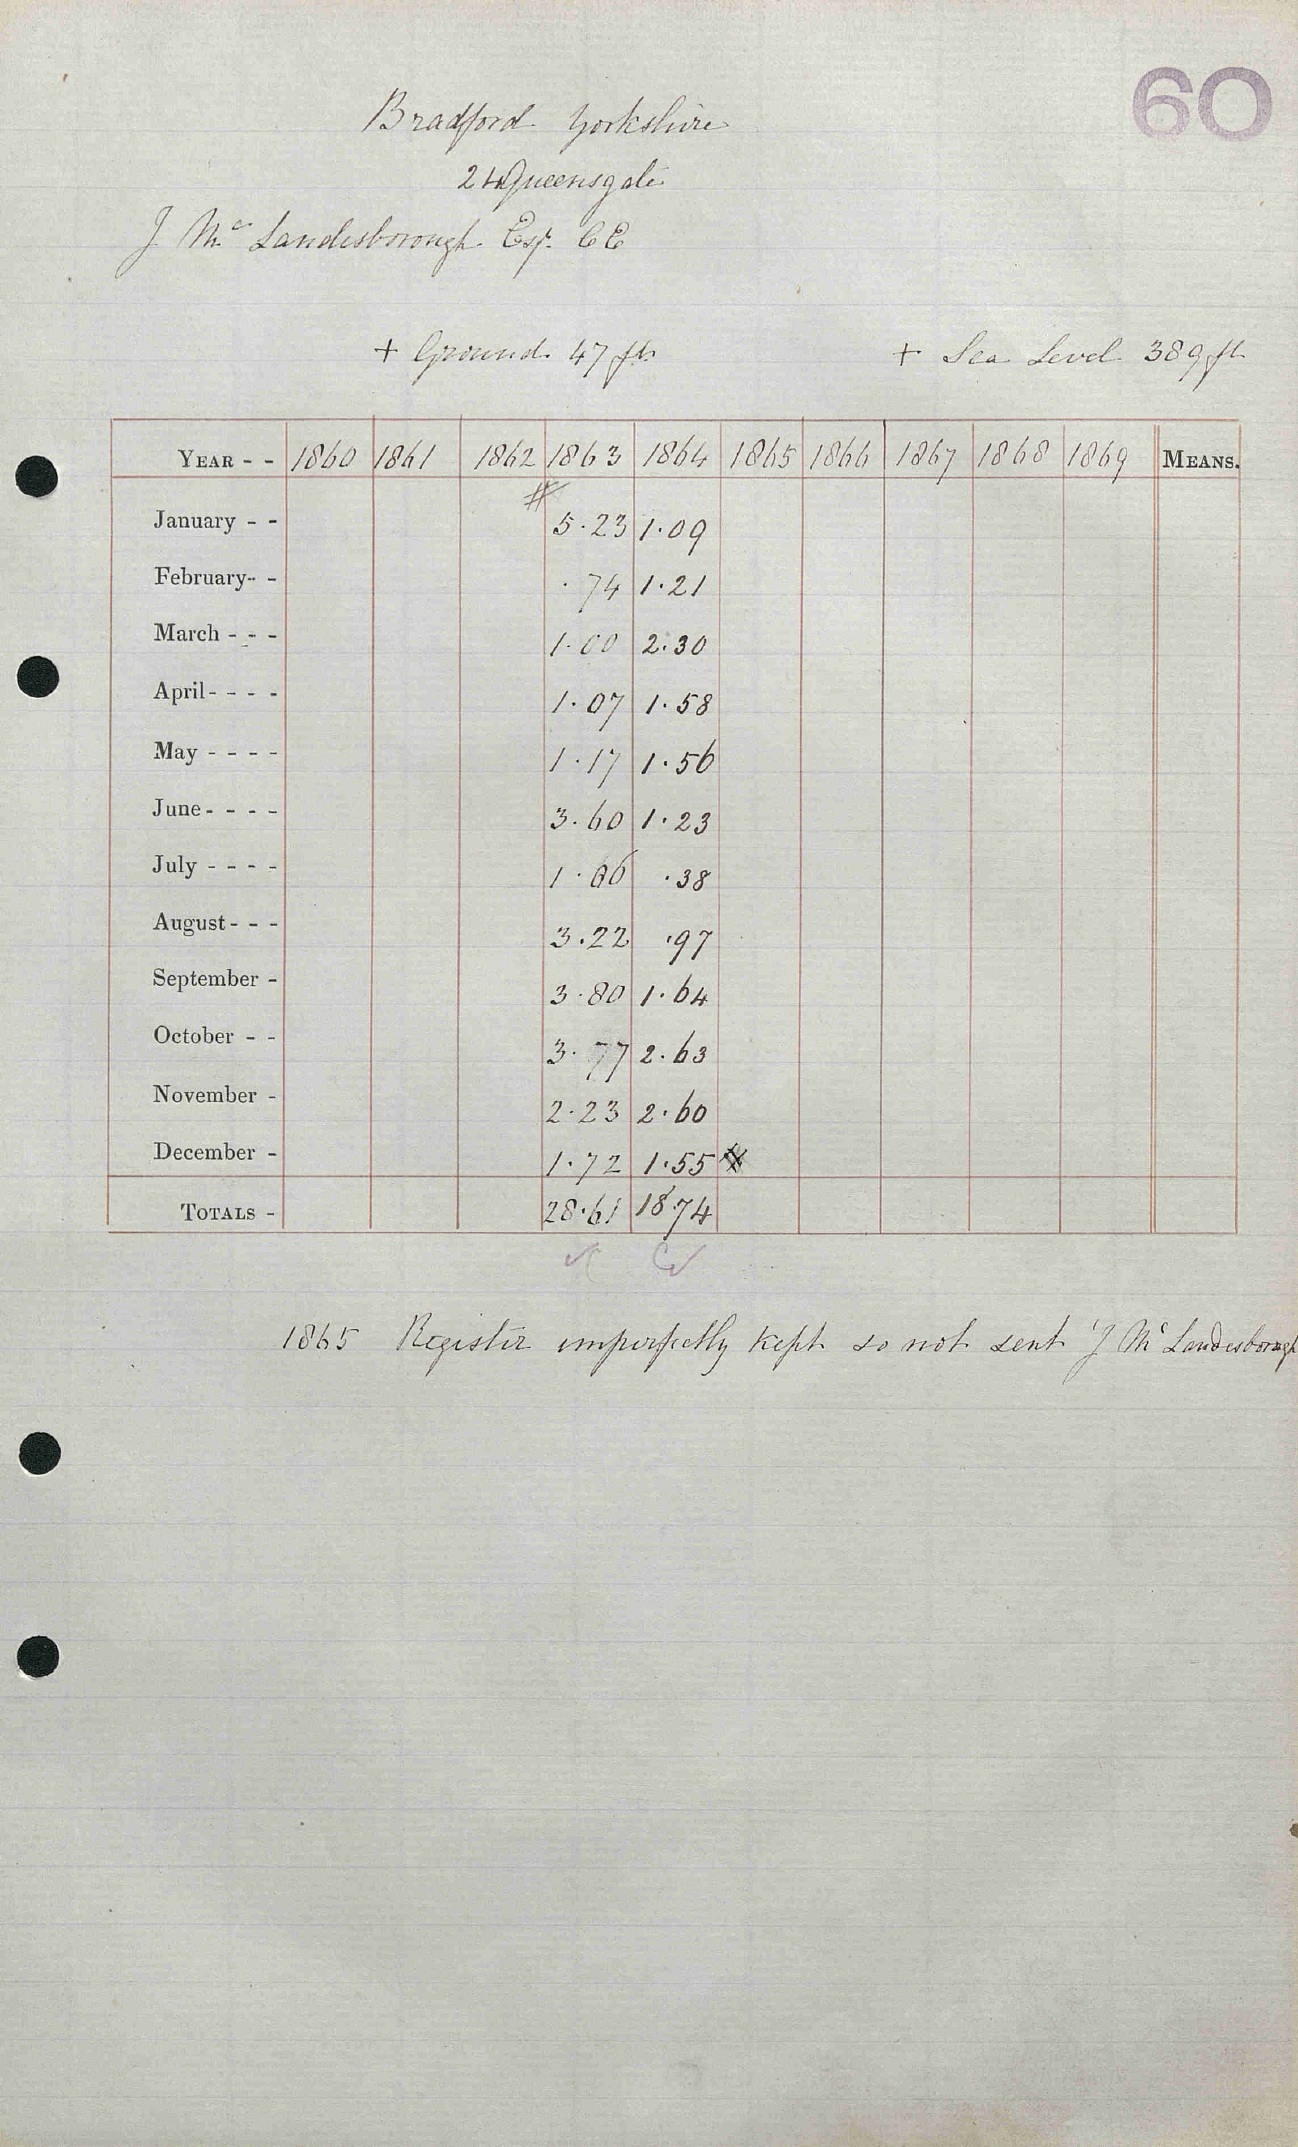 60
Bradford Yorkshire
24 Queensgate
J Mc Landesborough Esqr. CE
+ Ground 47 ft. + Sea Level 389 ft
YEAR - - 1860 1861 1862 1863 1864 1865 1866 1867 1868 1869 MEANS.
January - - 5.23 1.09
February - - .74 1.21
March - - - 1.00 2.30
April - - - - 1.07 1.58
May - - - - 1.17 1.56
June - - - - 3.60 1.23
July - - - - 1.06 .38
August - - - 3.22 .97
September - 3.80 1.64
October - - 3.77 2.63
November - 2.23 2.60
December - 1.72 1.55
TOTALS - 28.61 18.74
1865 Register imperfectly kept so not sent J Mc Landesborough